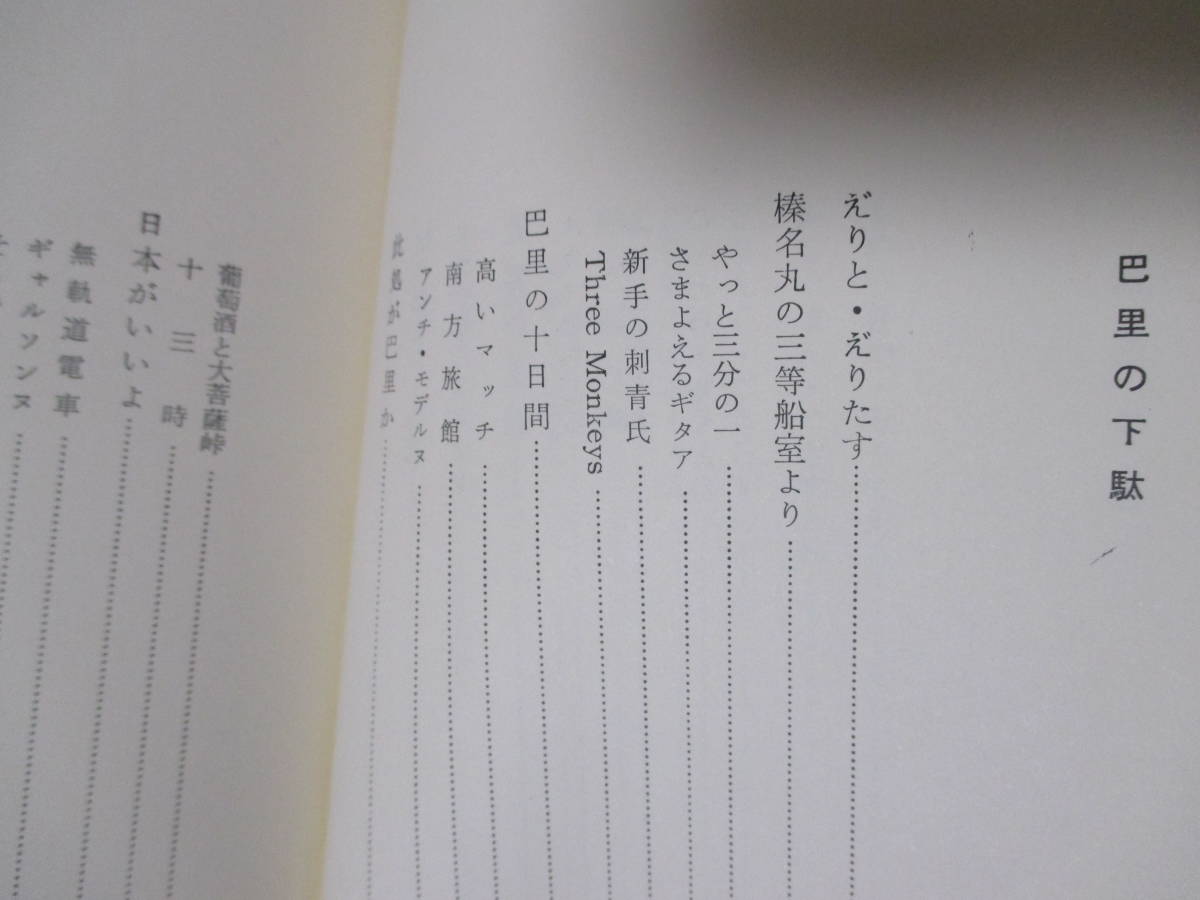 巴里の下駄
えりと・えりたす
榛名丸の三等船室より
やっと三分の一
さまよえるギタア
新手の刺青氏
Three Monkeys
巴里の十日間
高いマッチ
南方旅館
アンチ・モデルヌ
此処が巴里か
葡萄酒と大菩薩峠
十三時
日本がいいよ
無軌道電車
ギャルソンヌ